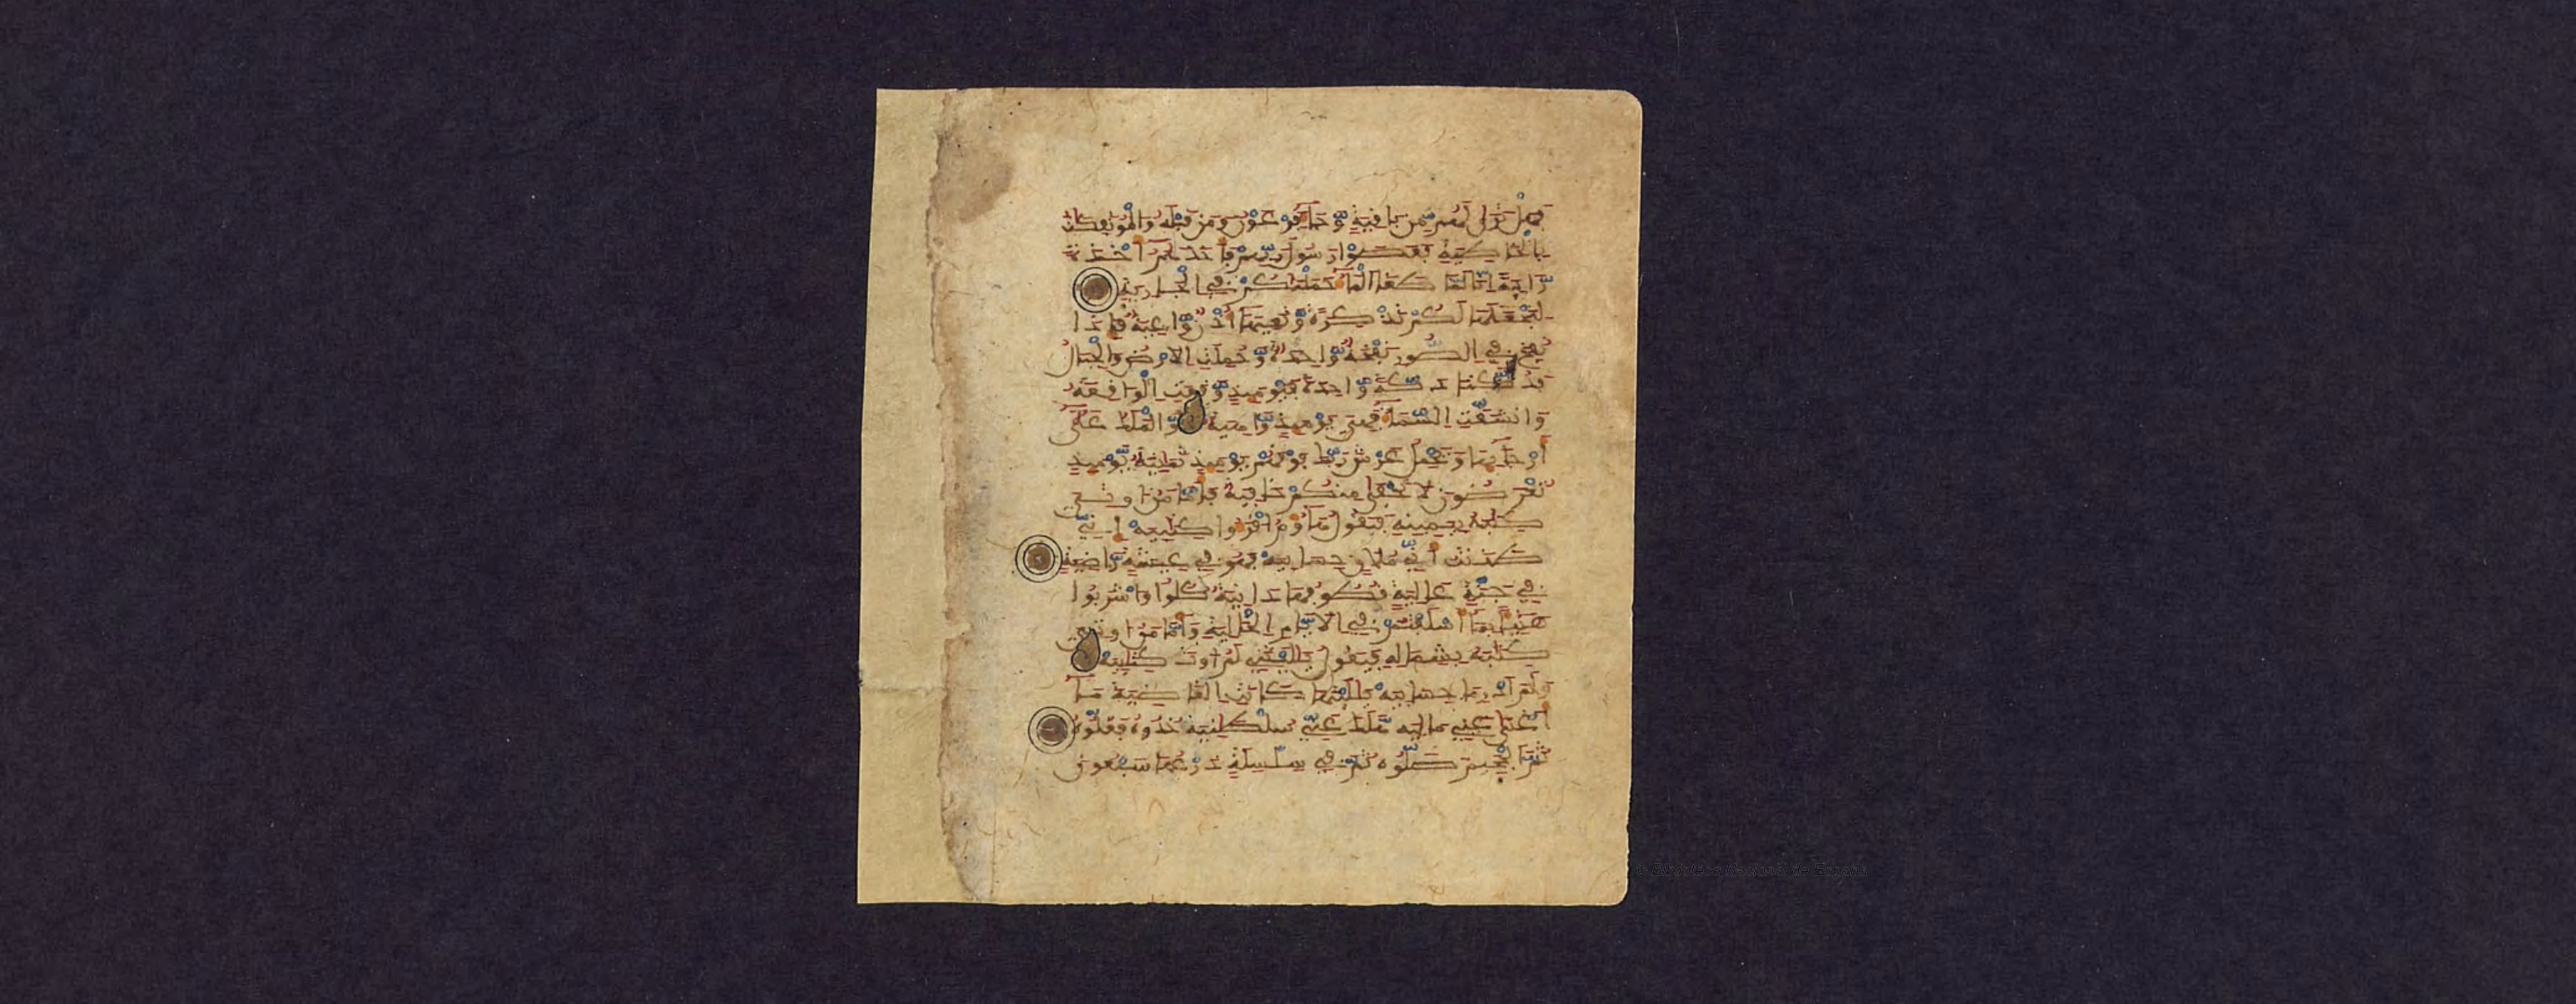 فَهَلْ تَرَىٰ لَهُم مِّنۢ بَاقِيَةٖ وَجَآءَ فِرْعَوْنُ وَمَن قَبْلَهُۥ وَالْمُوتَفِكَٰتُ
بِالْخَاطِئَةِ فَعَصَوْا رَسُولَ رَبِّهِمْ فَأَخَذَهُمُۥٓ أَخْذَةٗ
رَّابِيَةً اِنَّا لَمَّا طَغَا الْمَآءُ حَمَلْنَٰكُمْ فِي الْجَارِيَةِ
لِنَجْعَلَهَا لَكُمْ تَذْكِرَةٗ وَتَعِيَهَآ أُذْنٞ وَٰعِيَةٞ فَإِذَا
نُفِخَ فِي الصُّورِ نَفْخَةٞ وَٰحِدَةٞ وَحُمِلَتِ الَارْضُ وَالْجِبَالُ
فَدُكَّتَا دَكَّةٗ وَٰحِدَةٗ فَيَوْمَئِذٖ وَقَعَتِ الْوَاقِعَةُ
وَانشَقَّتِ السَّمَآءُ فَهِيَ يَوْمَئِذٖ وَاهِيَةٞ وَالْمَلَكُ عَلَىٰٓ
أَرْجَآئِهَا وَيَحْمِلُ عَرْشَ رَبِّكَ فَوْقَهُمْ يَوْمَئِذٖ ثَمَٰنِيَةٞ يَوْمَئِذٖ
تُعْرَضُونَ لَا تَخْفَىٰ مِنكُمْ خَافِيَةٞ فَأَمَّا مَنُ ا۟وتِيَ
كِتَٰبَهُۥ بِيَمِينِهِۦ فَيَقُولُ هَآؤُمُ اقْرَءُوا كِتَٰبِيَهْ إِنِّي
ظَنَنتُ أَنِّي مُلَٰقٍ حِسَابِيَهْ فَهُوَ فِي عِيشَةٖ رَّاضِيَةٖ
فِي جَنَّةٍ عَالِيَةٖ قُطُوفُهَا دَانِيَةٞ كُلُوا وَاشْرَبُوا
هَنِيٓـٔاَۢ بِمَآ أَسْلَفْتُمْ فِي الَايَّامِ الْخَالِيَةِ وَأَمَّا مَنُ ا۟وتِيَ
كِتَٰبَهُۥ بِشِمَالِهِۦ فَيَقُولُ يَٰلَيْتَنِي لَمُ ا۟وتَ كِتَٰبِيَهْ
وَلَمَ اَدْرِ مَا حِسَابِيَهْ يَٰلَيْتَهَا كَانَتِ الْقَاضِيَةَ مَآ
أَغْنَىٰ عَنِّي مَالِيَهْ هَلَكَ عَنِّي سُلْطَٰنِيَهْ خُذُوهُ فَغُلُّوهُ
ثُمَّ الْجَحِيمَ صَلُّوهُ ثُمَّ فِي سِلْسِلَةٖ ذَرْعُهَا سَبْعُونَ
Biblioteca Nacional de España